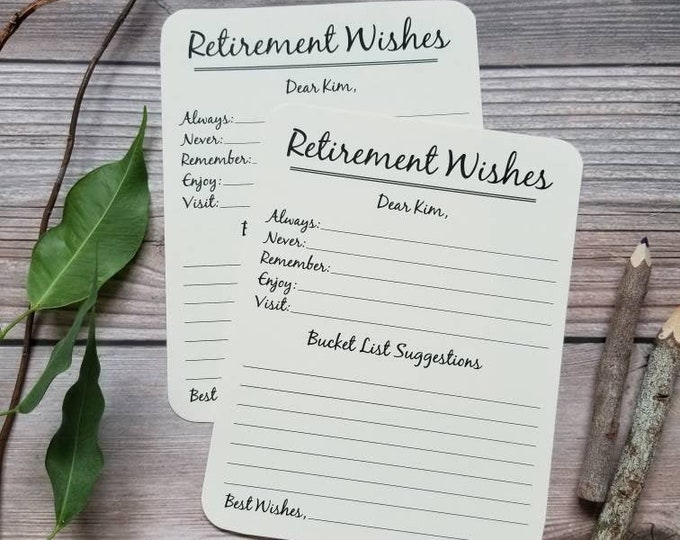 Retirement Wishes
Dear Kim,
Always:
Never:
Remember:
Enjoy:
Visit:
Best
Retirement Wishes
Dear Kim,
Always:
Never:
Remember:
Enjoy:
Visit:
Bucket List Suggestions
Best Wishes,